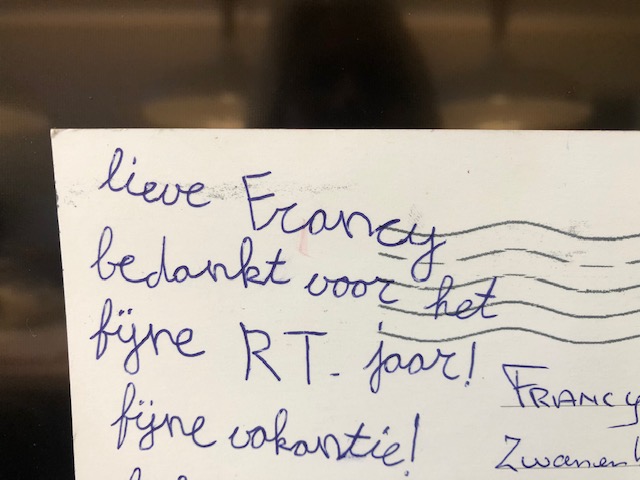 lieve Francy
bedankt voor het
fijne RT- jaar!
fijne vakantie!
FRANCY